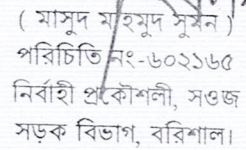 ( মাসুদ মাহমুদ সুমন )
পরিচিতি নং-৬০২১৬৫
নির্বাহী প্রকৌশলী, সওজ
সড়ক বিভাগ, বরিশাল।